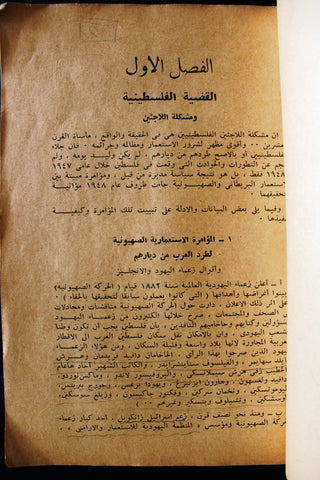 الفصل الاول
القضية الفلسطينية
ومشكلة اللاجئين
ان مشكلة اللاجئين الفلسطينيين هى فى الحقيقة والواقع ، مأساة القرن
عشرين ٠٠ وأقوى مظهر لشرور الاستعمار ومظالمه وجرائمه ٠ فان جلاء
فلسطينيين أو بالأصح طردهم من ديارهم ، لم يكن وليد يومه ، ولم
جم عن التطورات والحوادث التى وقعت فى فلسطين خلال عامى ١٩٤٧
١٩٤٨ فقط ، بل هو نتيجة سياسة مدبرة من قبل ، ومؤامرة مبيتة بين
استعمار البريطانى والصهيونية جاءت ظروف عام ١٩٤٨ مؤاتية
تحقيقها ٠
وفيما يلى بعض البيانات والادلة على تبييت تلك المؤامرة وكيفيــة
فيذها ٠
١ – المؤامرة الاستعمارية الصهيونية
لطرد العرب من ديارهم
وأقوال زعماء اليهود والانجليز
أ – أعلن زعماء اليهودية العالمية سنة ١٨٨٢ قيام ( الحركة الصهيونية )
ينوا أغراضها وأهدافها ( التى كانوا يعملون سابقا لتحقيقها بالخفاء )
على أثر ذلك الاعلان ، دارت حول الحركة الصهيونية مناقشات ومجادلات
ى الصحف والمجتمعات ، صرح خلالها الكثيرون من زعمــاء اليهــود
مسؤولى وكتابهم وحاخاميهم النافذين ، بأن فلسطين يجب أن تكون وطنا
شعب اليهودى ، وان بالامكان نقل سكان فلسطين العرب الى الأقطار
عربية المجاورة لانها بلاد واسعة وغنية ٠ ومن هؤلاء الزعمــاء
يهود الذين صرحوا بهذا الرأى ، الحاخامان دافيد فريدمان وهــرش
الخطيب زفى هرش
دافيد ولفسهون ، وهارون
ب – ومنذ نحو نصف قرن ، زعم اسرائيل زانكويل ، أحد كبار زعمــاء
حركة الصهيونية ومؤسس « المنظمة اليهودية للاستعمار والاراضى » ،